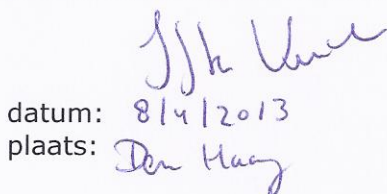 datum: 8/4/2013
plaats: Den Haag